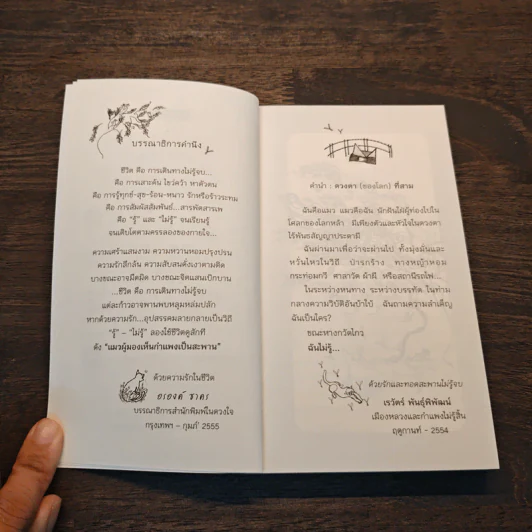 บรรณาธิการคำนึง
ชีวิต คือ การเดินทางไม่รู้จบ...
คือ การเสาะค้น ไขว่คว้า หาตัวตน
คือ การรู้ทุกข์-สุข-ร้อน-หนาว รักหรือร้าวระทม
คือ การสัมผัสสัมพันธ์...สารพัดสารเพ
คือ “รู้” และ “ไม่รู้” จนเรียนรู้
จนเติบโตตามครรลองของกายใจ...
ความเศร้าแสนงาม ความหวานหอมปรุงปรน
ความรักลึกล้น ความสับสนดั่งเงาตามติด
บางขณะอาจมืดมิด บางขณะจิตแสนเบิกบาน
...ชีวิต คือ การเดินทางไม่รู้จบ
แต่ละก้าวอาจพานพบหลุมหล่มปลัก
หากด้วยความรัก...อุปสรรคมลายกลายเป็นวิถี
“รู้” – “ไม่รู้” ลองใช้ชีวิตดูสักที
ดั่ง “แมวผู้มองเห็นกำแพงเป็นสะพาน”
ด้วยความรักในชีวิต
บรรณาธิการสำนักพิมพ์ในดวงใจ
กรุงเทพฯ - กุมภ์ 2555
คำนำ : ดวงตา (ของโลก) ที่สาม
ฉันคือแมว แมวคือฉัน นักฝันใฝ่ผู้ท่องไปใน
โคลกของโลกหล้า มีเพียงตัวและหัวใจในดวงตา
ไร้พันธสัญญาประดามี
ฉันผ่านมาเพื่อว่าจะผ่านไป ทั้งมุ่งมั่นและ
หวั่นไหวในวิถี ป่ารกร้าง ทางหญ้าหอม
กระท่อมกวี ศาลาวัด ผ้าผี หรือสถานีรถไฟ...
ในระหว่างหนทาง ระหว่างบรรทัด ในท่าม
กลางความวิบัติอันบ้าใบ้ ฉันถามความสำคัญ
ฉันเป็นใคร?
ขณะทางกวัดไกว
ฉันไม่รู้...
ด้วยรักและทอดสะพานไม่รู้จบ
เรวัตร์ พันธุ์พิพัฒน์
เมืองหลวงและกำแพงไม่รู้สิ้น
ฤดูกานท์ - 2554